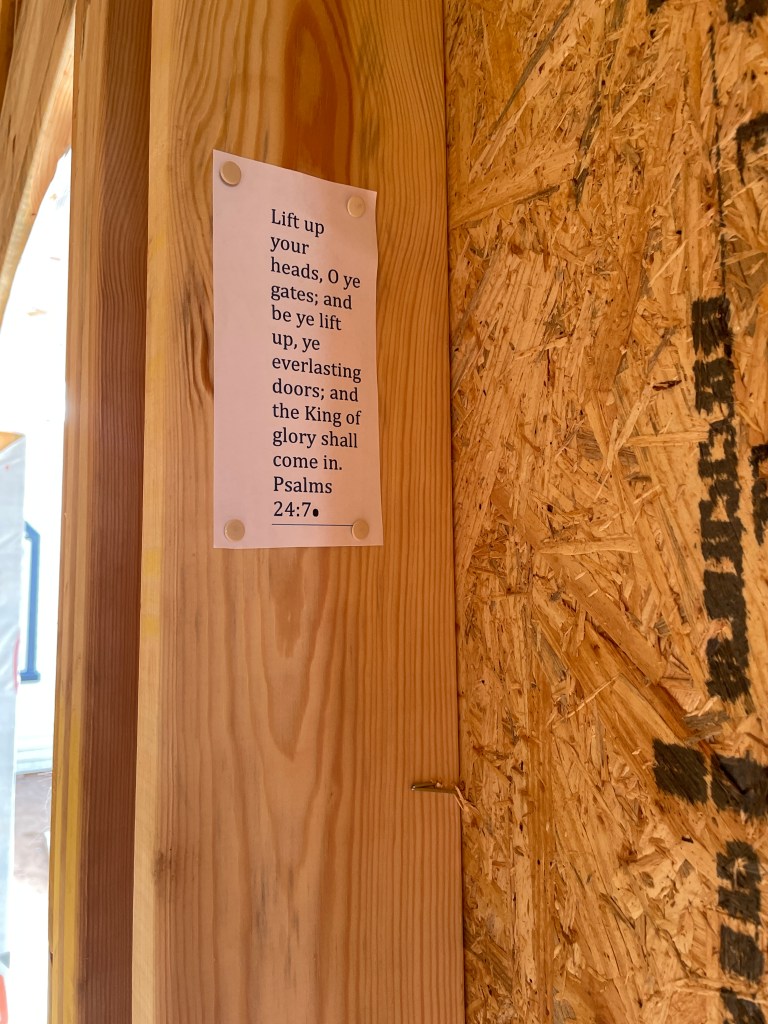 Lift up
your
heads, O ye
gates; and
be ye lift
up, ye
everlasting
doors; and
the King of
glory shall
come in.
Psalms
24:7.